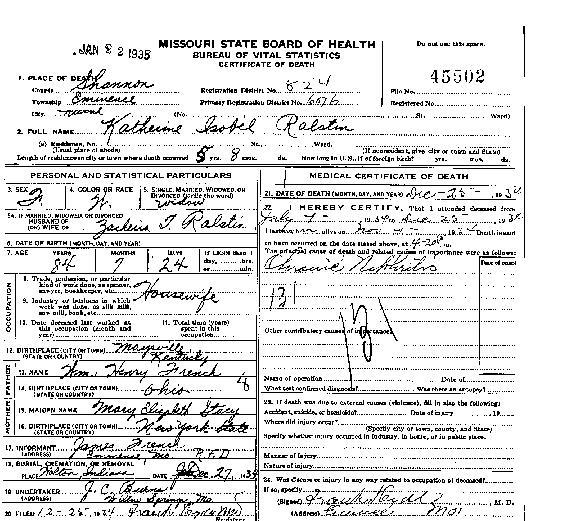 JAN 22 1935
MISSOURI STATE BOARD OF HEALTH
BUREAU OF VITAL STATISTICS
CERTIFICATE OF DEATH
Do not use this space.
45502
1. PLACE OF DEATH
County Shannon
Registration District No. 824
File No.
Township Eminence
Primary Registration District No.
Registered No.
City (No. St. Ward)
2. FULL NAME Katherine Isobel Ralstin
(a) Residence, No. St. Ward.
(Usual place of abode) (If nonresident, give city or town and State)
Length of residence in city or town where death occurred 5 yrs. 8 mos. ds. How long in U. S., if of foreign birth? yrs. mos. ds.
PERSONAL AND STATISTICAL PARTICULARS
3. SEX F
4. COLOR OR RACE W.
5. SINGLE, MARRIED, WIDOWED, OR DIVORCED (write the word) Widow
5a. IF MARRIED, WIDOWED, OR DIVORCED
HUSBAND OF
(OR) WIFE OF T. Ralstin
6. DATE OF BIRTH (MONTH, DAY, AND YEAR)
7. AGE YEARS MONTHS DAYS If LESS than 1 day, hrs. or min.
84 7 24
OCCUPATION
8. Trade, profession, or particular kind of work done, as spinner, sawyer, bookkeeper, etc. Housewife
9. Industry or business in which work was done, as silk mill, saw mill, bank, etc.
10. Date deceased last worked at this occupation (month and year)
11. Total time (years) spent in this occupation
12. BIRTHPLACE (CITY OR TOWN) Maysville
(STATE OR COUNTRY) Kentucky
FATHER
13. NAME Wm. Henry French
14. BIRTHPLACE (CITY OR TOWN)
(STATE OR COUNTRY) Ohio
MOTHER
15. MAIDEN NAME Mary Elizabeth Stacy
16. BIRTHPLACE (CITY OR TOWN)
(STATE OR COUNTRY) New York State
17. INFORMANT James French
(ADDRESS) Eminence Mo R.F.D
18. BURIAL, CREMATION, OR REMOVAL
PLACE Indiana DATE Dec 27, 1934
19. UNDERTAKER J. C.
(ADDRESS) Willow Springs, Mo.
20. FILED 12-25-1934 Frank
Registrar
MEDICAL CERTIFICATE OF DEATH
21. DATE OF DEATH (MONTH, DAY, AND YEAR) Dec-25-1934
22. I HEREBY CERTIFY, That I attended deceased from
July 1934 to Dec 25 1934
I last saw alive on 1934 Death is said
to have occurred on the date stated above, at 4-20 m.
The principal cause of death and related causes of importance were as follows:
Date of onset
Chronic Nephritis
131
Other contributory causes of importance:
Name of operation Date of
What test confirmed diagnosis? Was there an autopsy?
23. If death was due to external causes (violence), fill in also the following:
Accident, suicide, or homicide? Date of injury , 19
Where did injury occur?
(Specify city or town, county, and State)
Specify whether injury occurred in industry, in home, or in public place.
Manner of injury
Nature of injury
24. Was disease or injury in any way related to occupation of deceased?
If so, specify
(Signed) Frank , M. D.
(Address) Eminence Mo